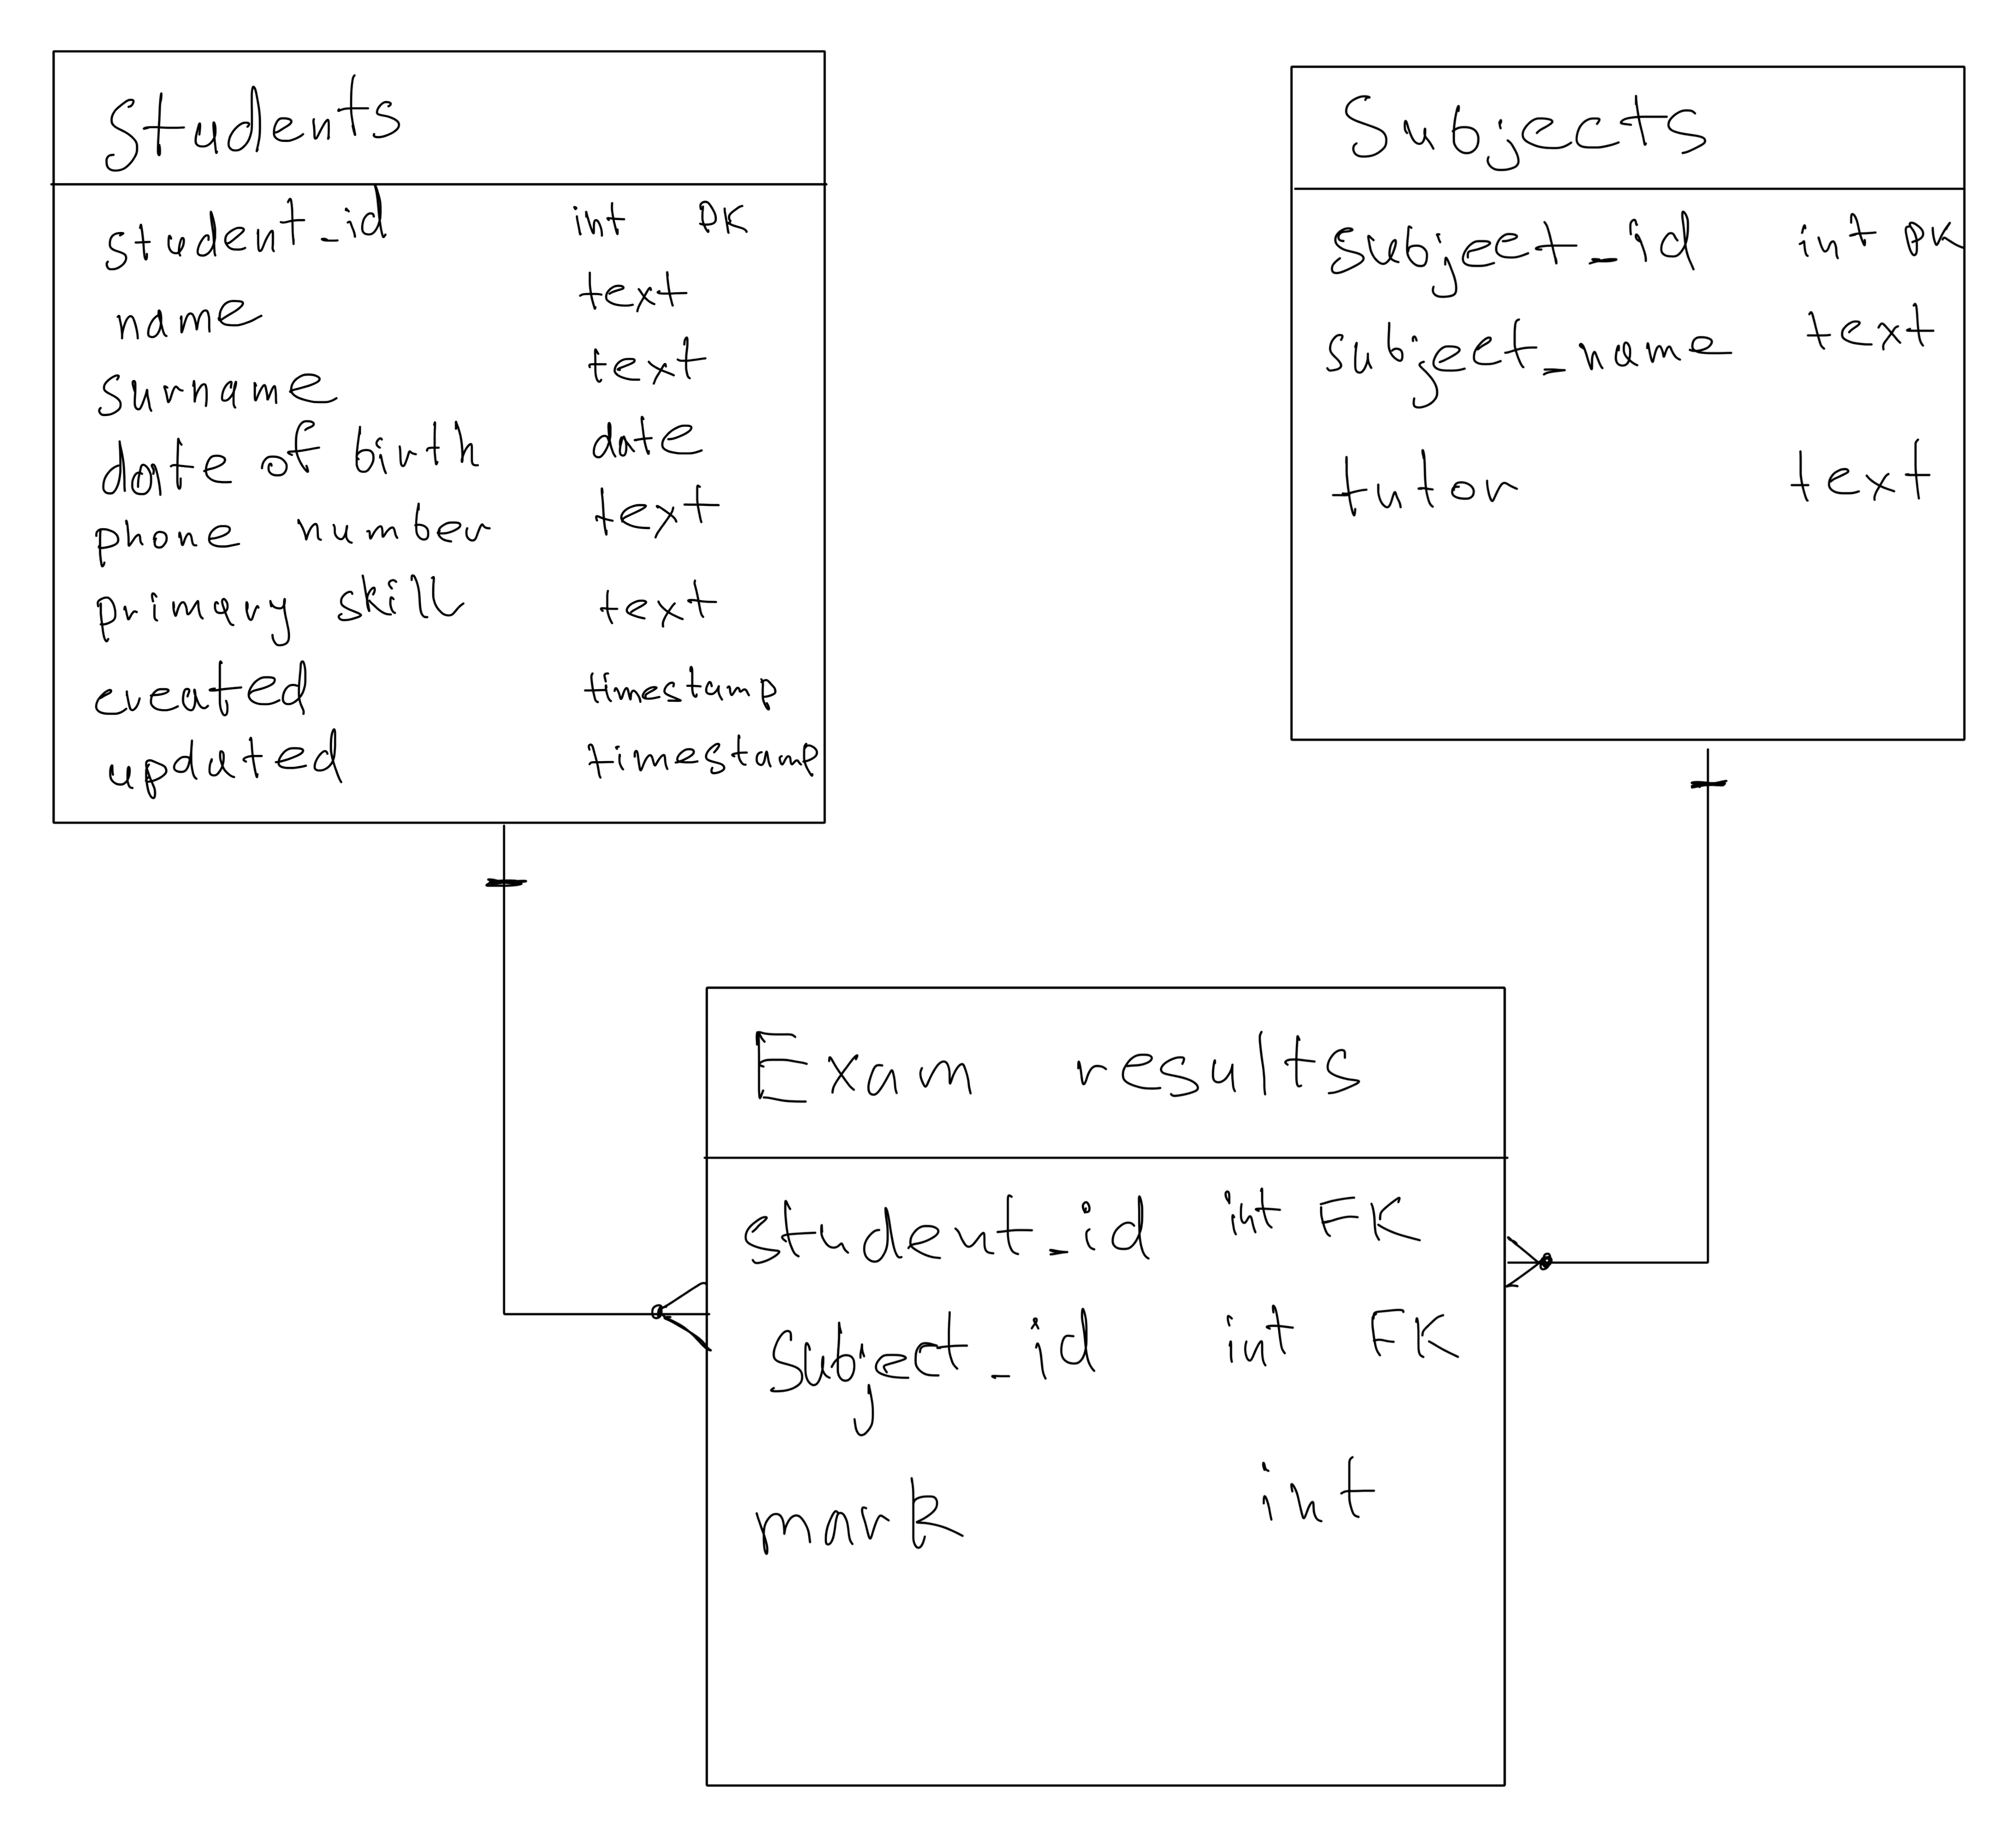 Students
student_id int PK
name text
surname text
date of birth date
phone number text
primary skill text
created timestamp
updated timestamp
Subjects
subject_id int PK
subject_name text
tutor text
Exam results
student_id int FK
subject_id int FK
mark int